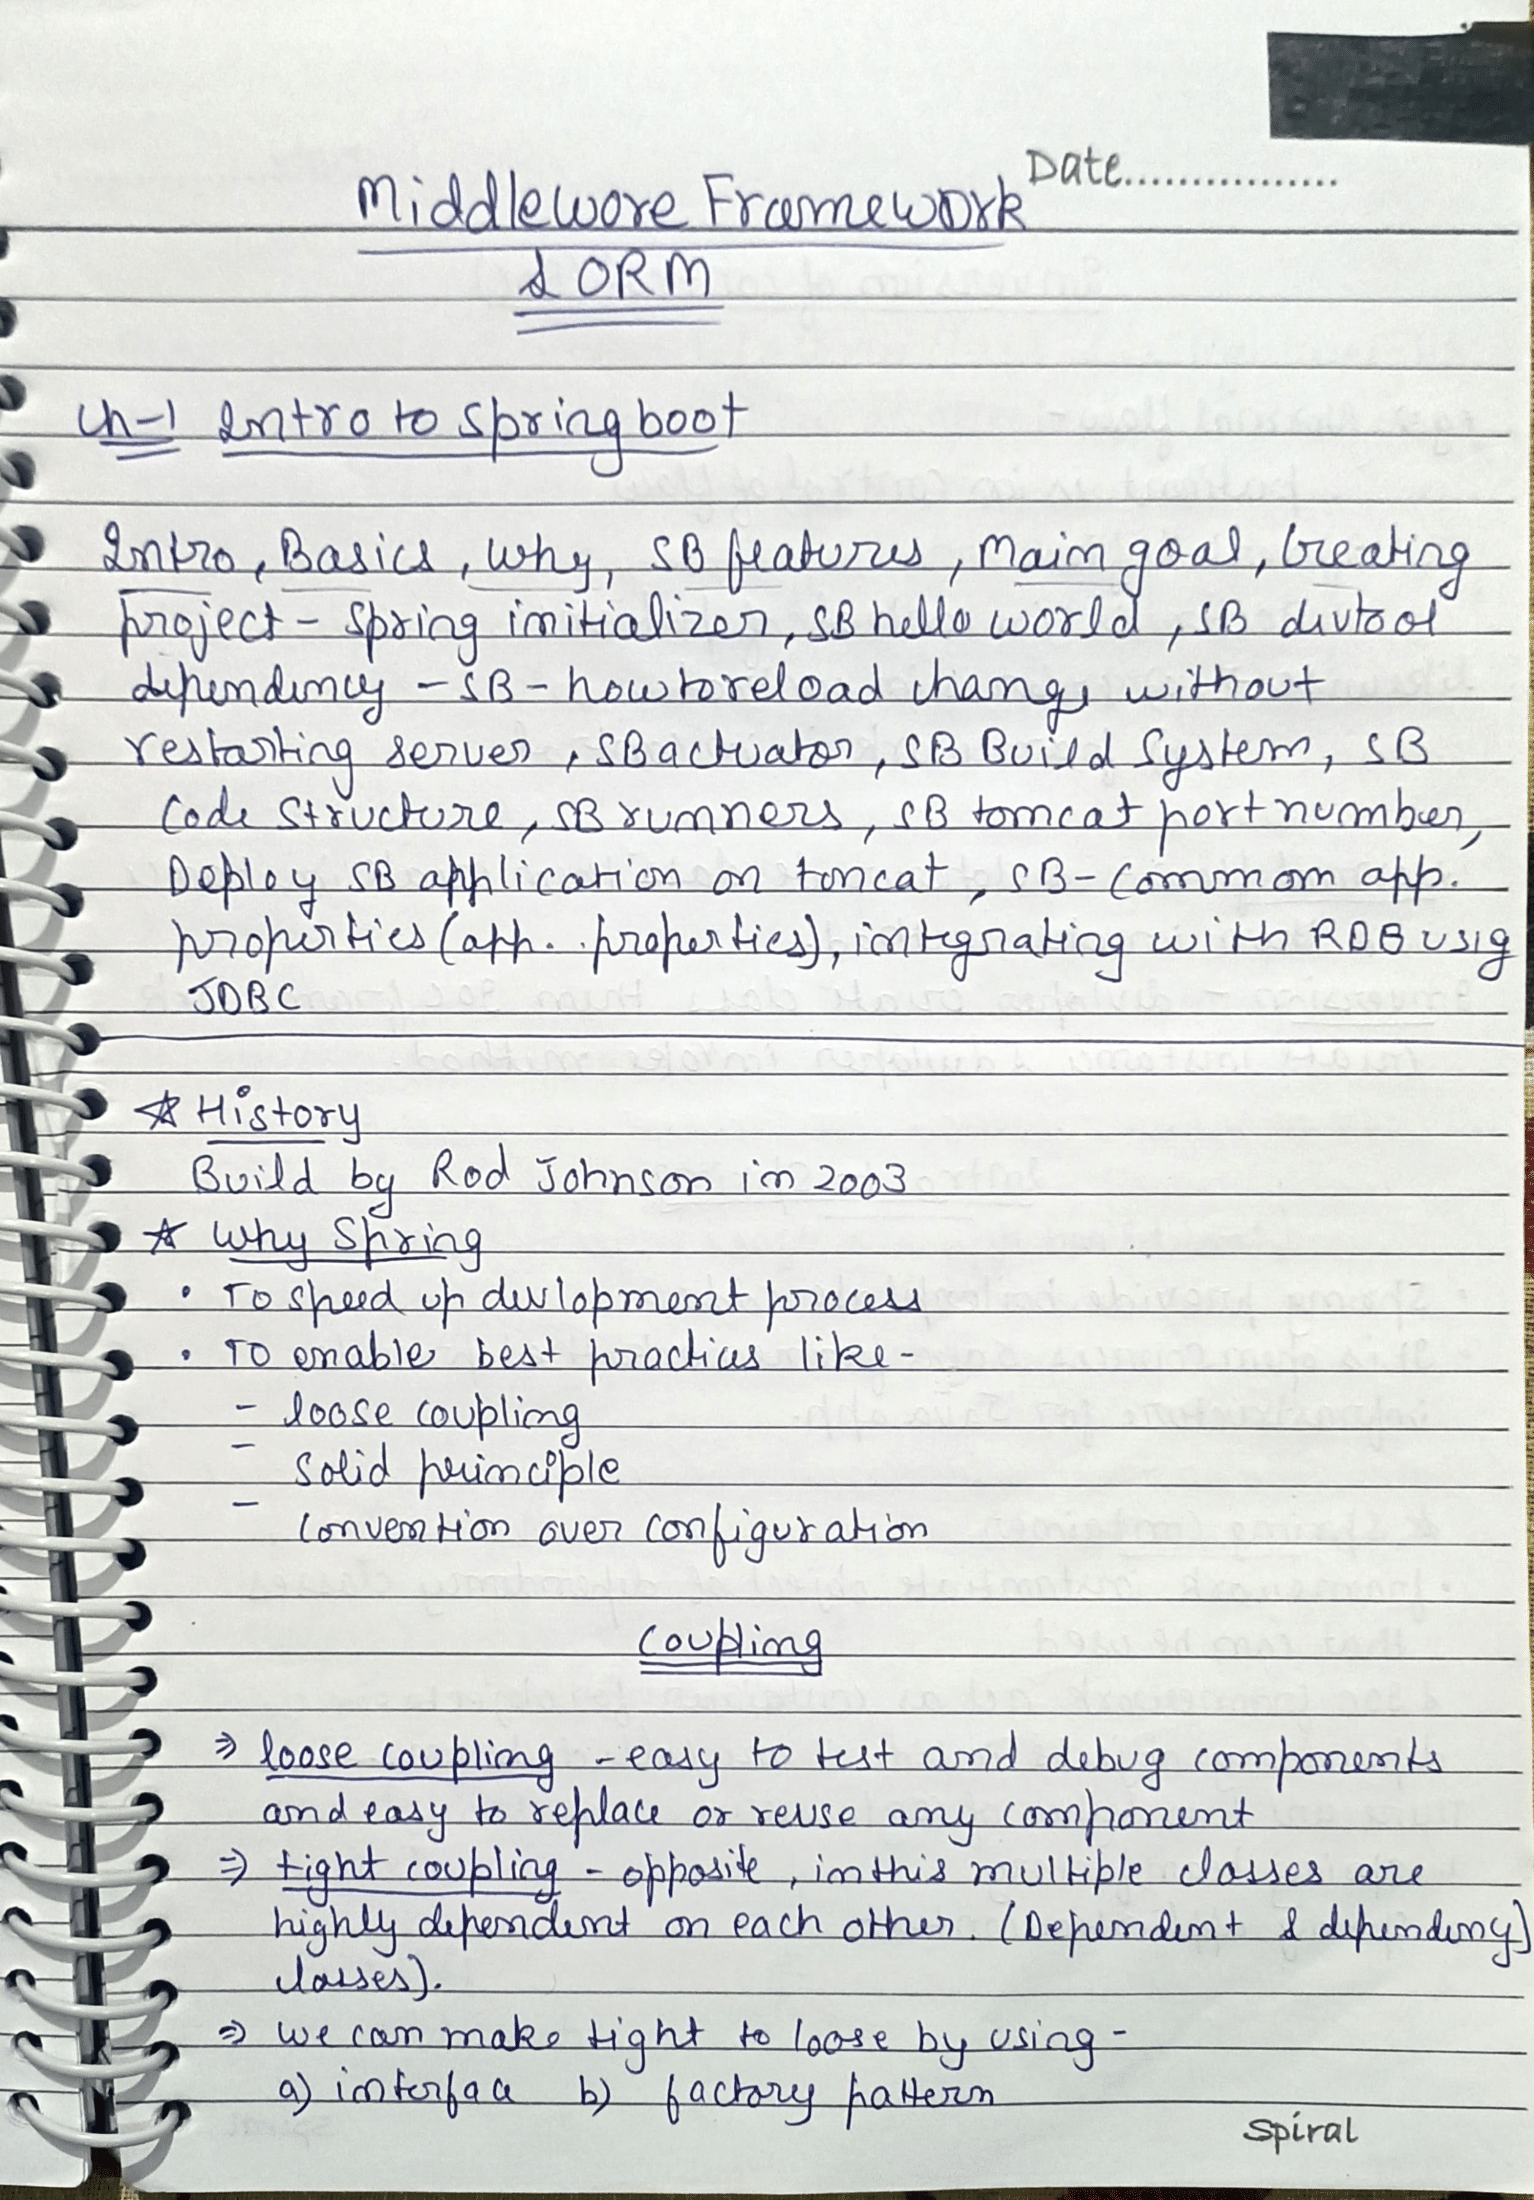 Date................
Middleware Framework
& ORM
Ch-1 Intro to Spring boot
Intro, Basics, Why, SB features, Main goal, Creating
project - Spring initializer, SB hello world, SB devtool
dependency - SB - how to reload change without
restarting server, SB actuator, SB Build System, SB
Code Structure, SB runners, SB tomcat port number,
Deploy SB application on toncat, SB - Common app.
properties (app. .properties), integrating with RDB usig
JDBC
☆ History
Build by Rod Johnson in 2003
☆ Why Spring
• To speed up devlopment process
• To enable best practices like -
- loose coupling
- Solid principle
- Convention over configuration
Coupling
⇒ loose coupling - easy to test and debug components
and easy to replace or reuse any component
⇒ tight coupling - opposite, in this multiple classes are
highly dependent on each other. (Dependent & dependency)
classes).
⇒ we can make tight to loose by using -
a) interface b) factory pattern
Spiral